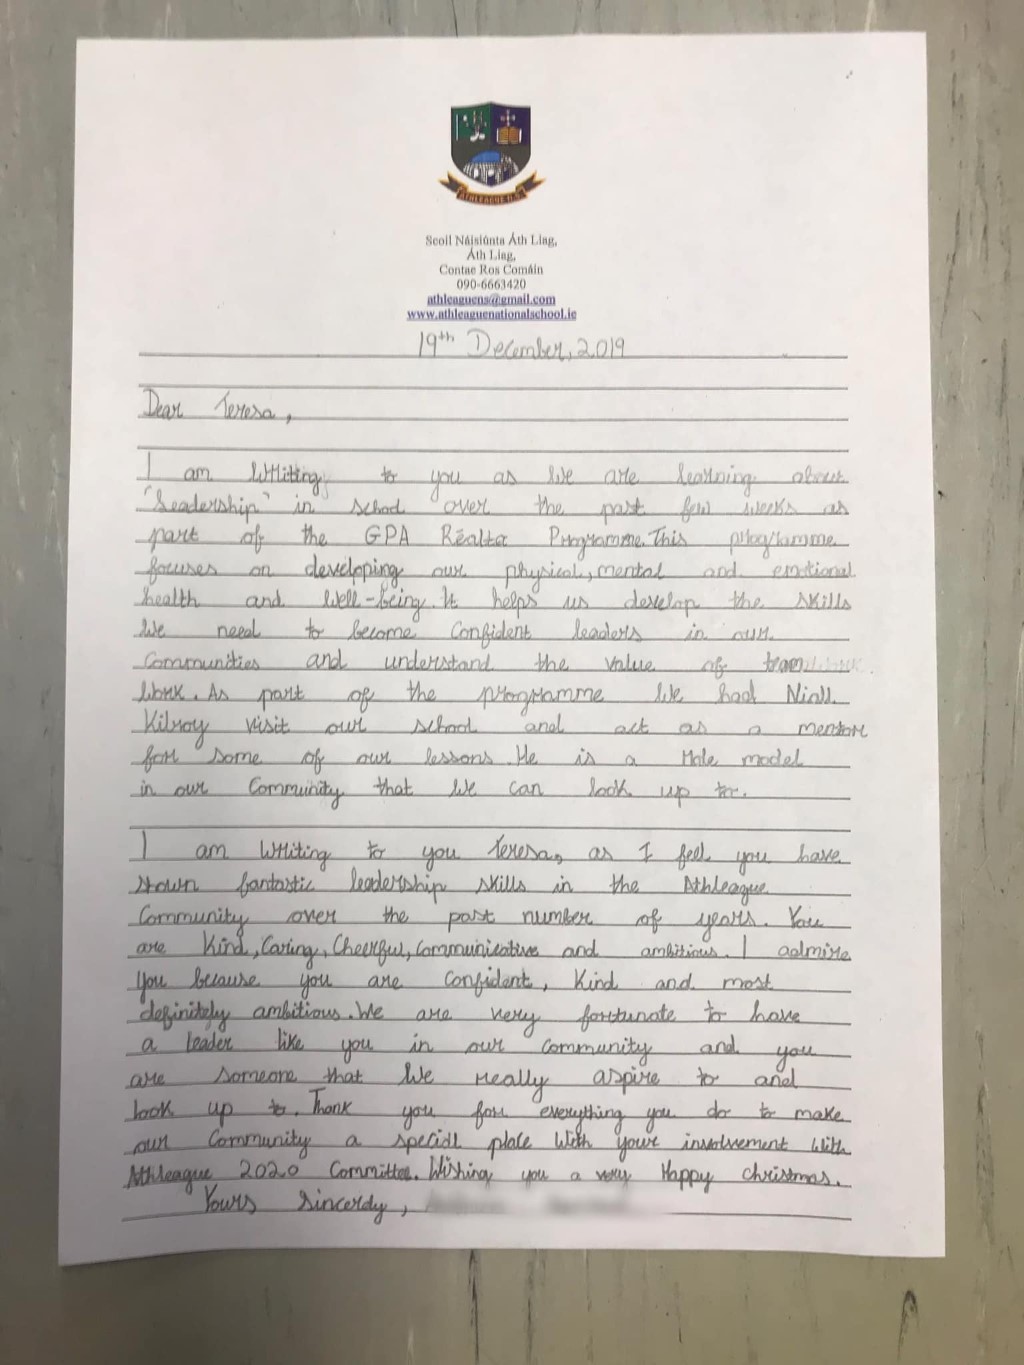 ATHLEAGUE N.S.
Scoil Náisiúnta Áth Liag,
Áth Liag,
Contae Ros Comáin
090-6663420
athleaguens@gmail.com
www.athleaguenationalschool.ie
19th December, 2019
Dear Teresa,
I am writing to you as we are learning about
"leadership" in school over the past few weeks as
part of the GPA Réalta Programme. This programme
focuses on developing our physical, mental and emotional
health and well-being. It helps us develop the skills
we need to become confident leaders in our
communities and understand the value of team
work. As part of the programme we had Niall
Kilroy visit our school and act as a mentor
for some of our lessons. He is a role model
in our community that we can look up to.
I am writing to you Teresa, as I feel you have
shown fantastic leadership skills in the Athleague
Community over the past number of years. You
are kind, caring, cheerful, communicative and ambitious. I admire
you because you are confident, kind and most
definitely ambitious. We are very fortunate to have
a leader like you in our community and you
are someone that we really aspire to and
look up to. Thank you for everything you do to make
our community a special place with your involvement with
Athleague 2020 Committee. Wishing you a very Happy Christmas.
Yours Sincerely,